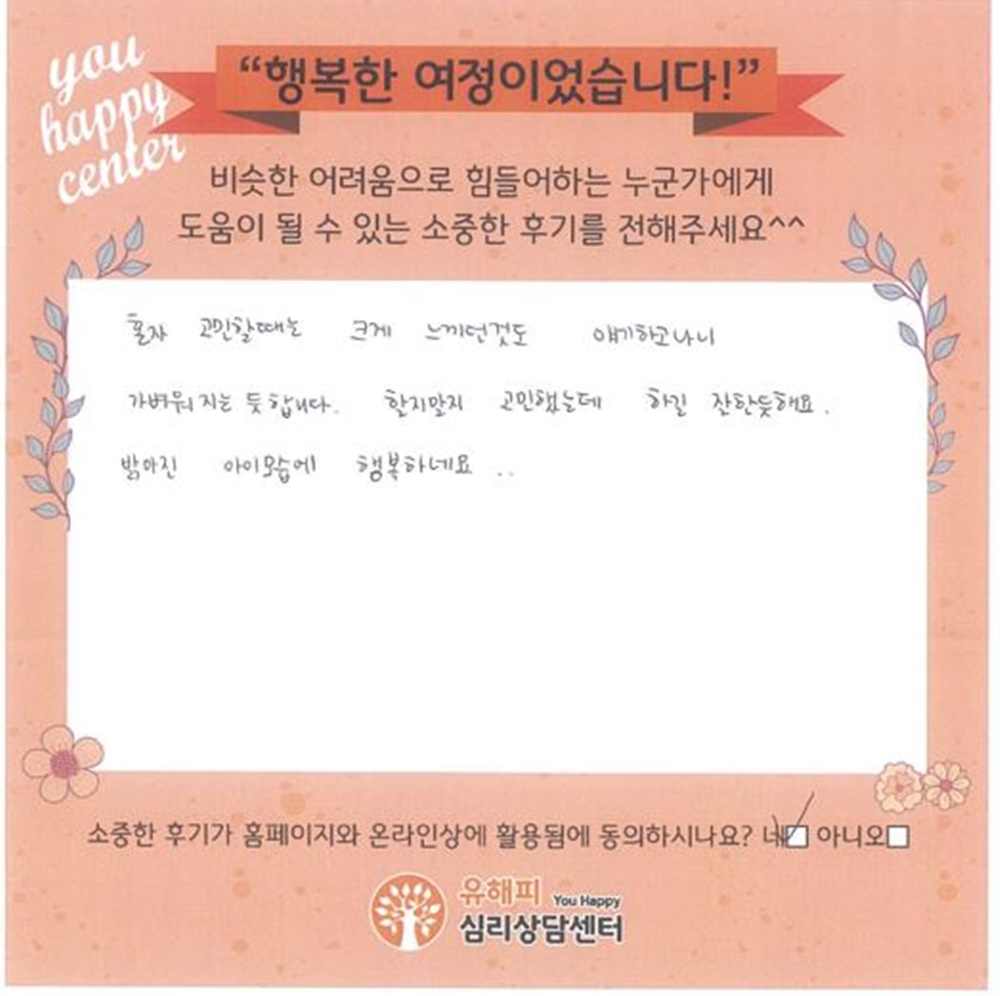 you
happy
center
“행복한 여정이었습니다!”
비슷한 어려움으로 힘들어하는 누군가에게
도움이 될 수 있는 소중한 후기를 전해주세요^^
혼자 고민할때는 크게 느끼던것도 얘기하고나니
가벼워 지는 듯 합니다. 할지말지 고민했는데 하길 잔한듯해요.
밝아진 아이모습에 행복하네요 ..
소중한 후기가 홈페이지와 온라인상에 활용됨에 동의하시나요? 네 아니오
유해피 You Happy
심리상담센터